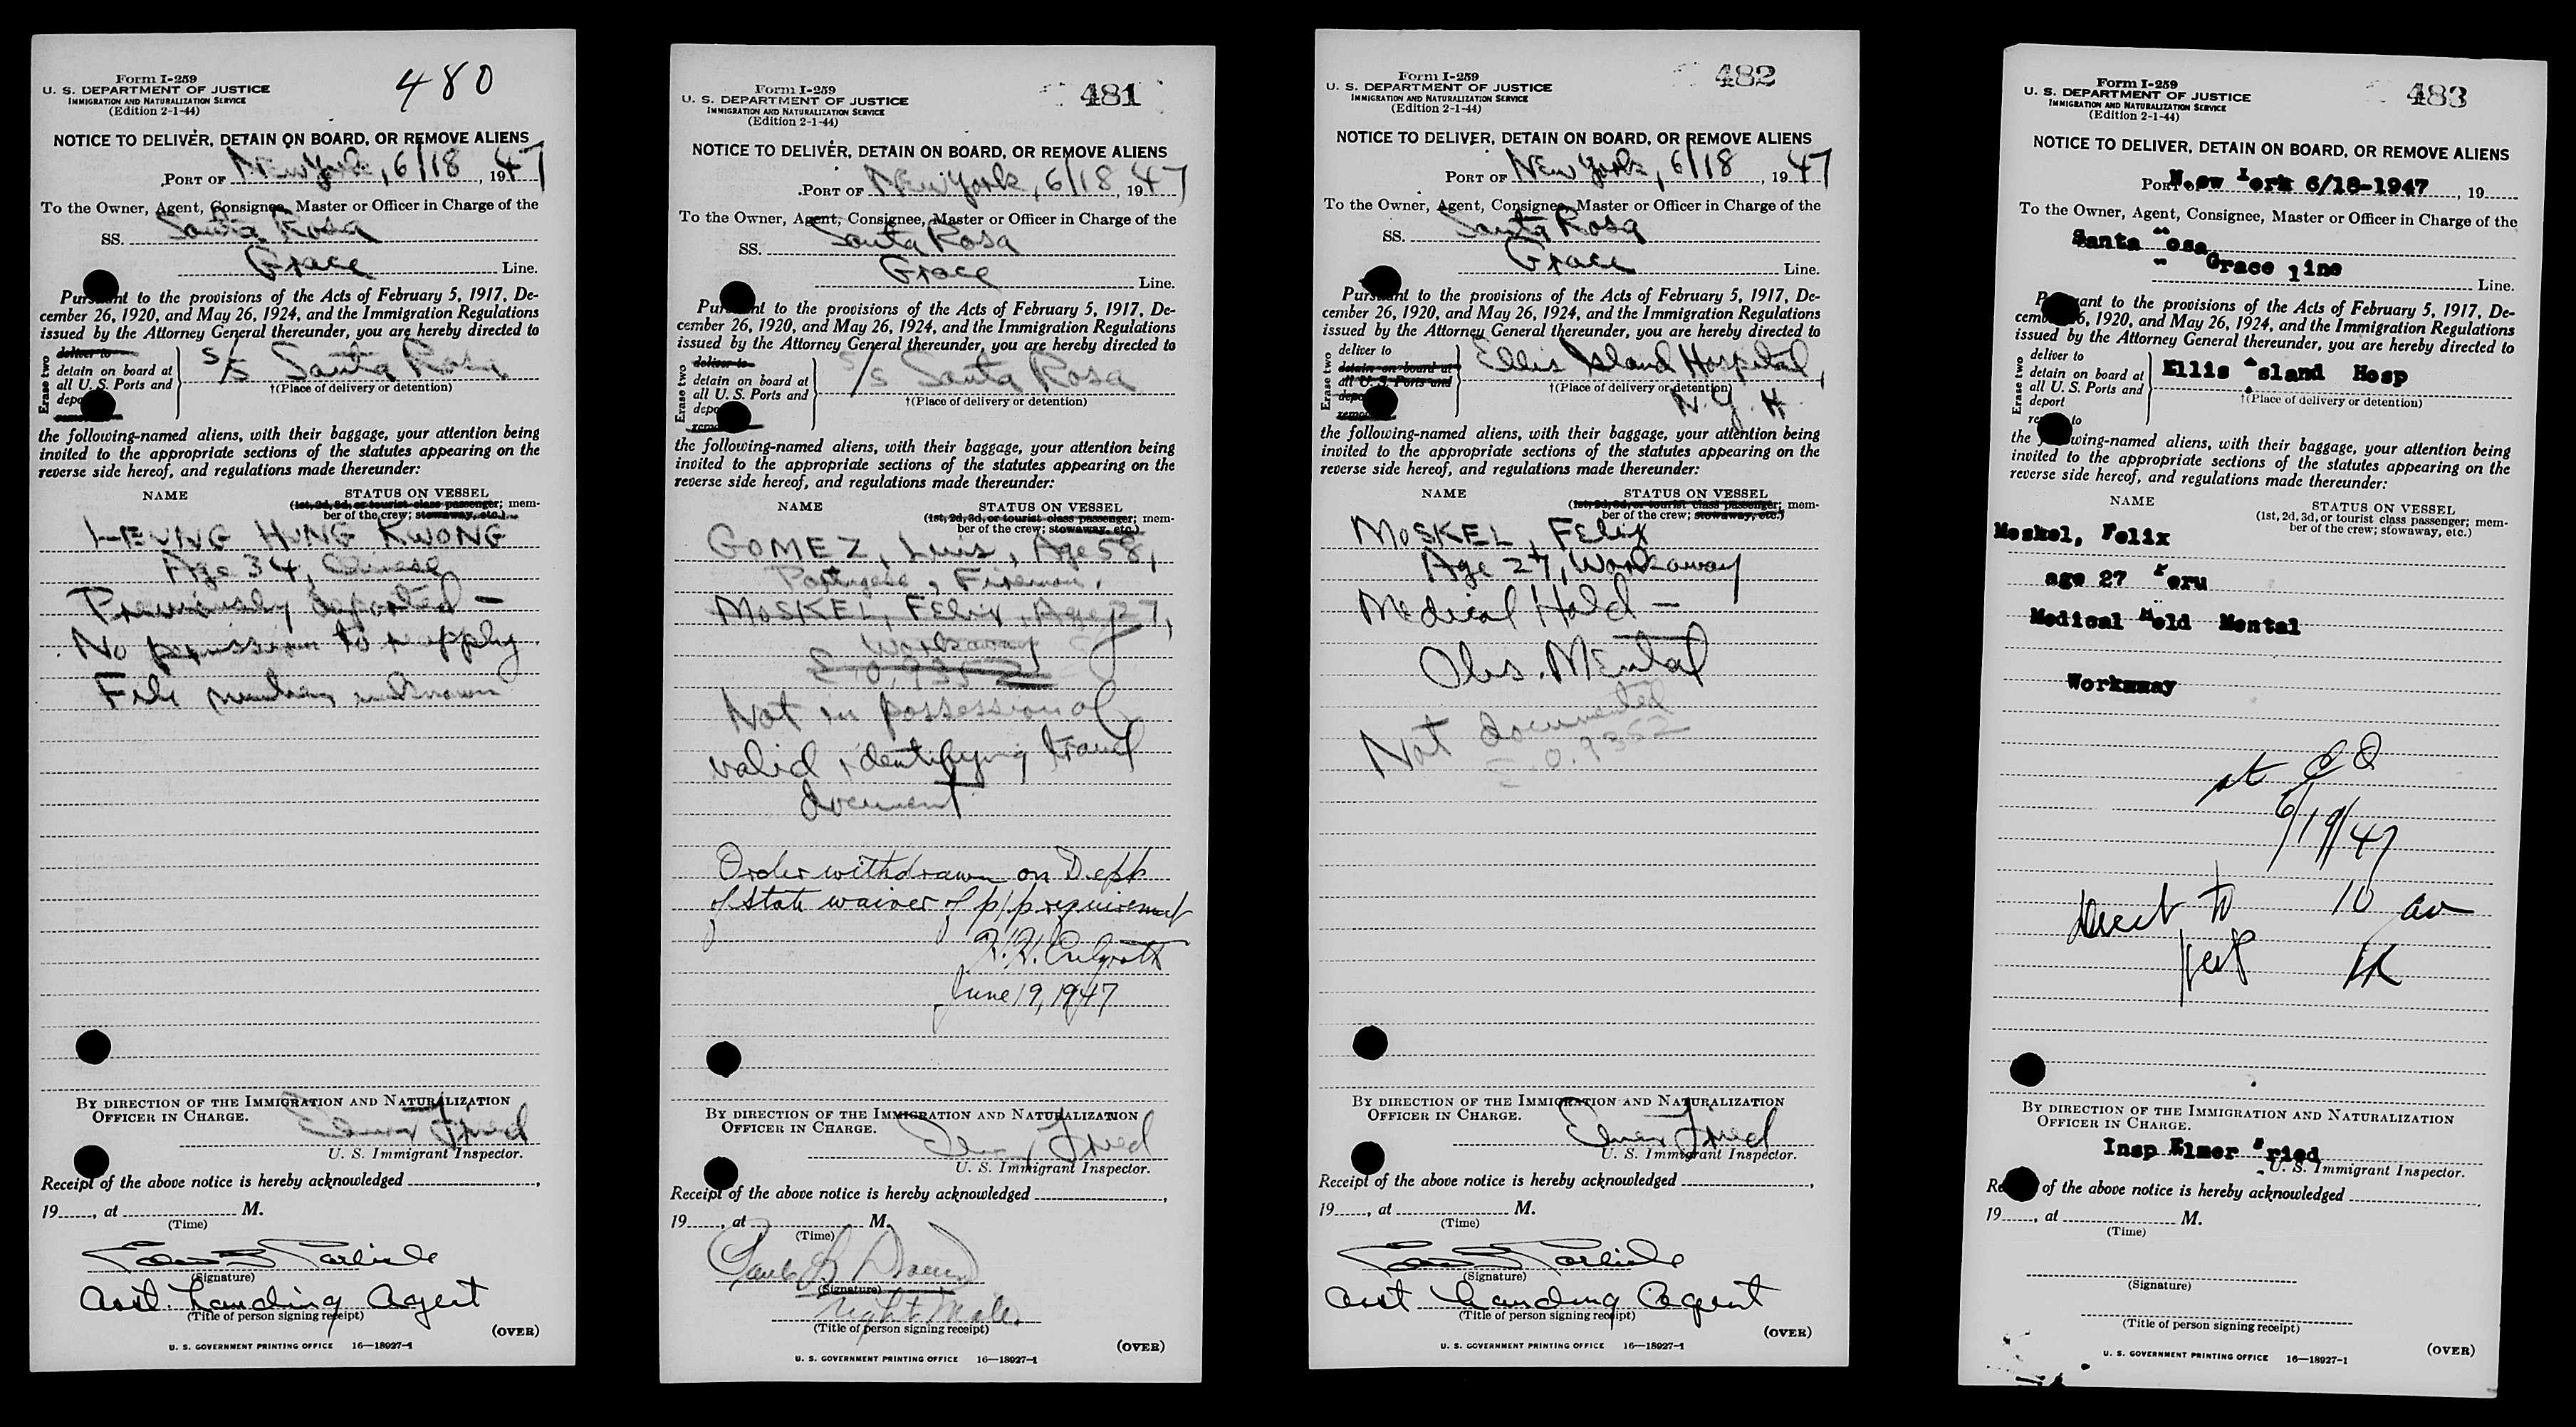 Form I-259
U. S. DEPARTMENT OF JUSTICE
IMMIGRATION AND NATURALIZATION SERVICE
(Edition 2-1-44)
480
NOTICE TO DELIVER, DETAIN ON BOARD, OR REMOVE ALIENS
PORT OF New York, 6/18, 1947
To the Owner, Agent, Consignee, Master or Officer in Charge of the
SS. Santa Rosa
Grace Line.
Pursuant to the provisions of the Acts of February 5, 1917, De-
cember 26, 1920, and May 26, 1924, and the Immigration Regulations
issued by the Attorney General thereunder, you are hereby directed to
Erase two
deliver to
detain on board at
all U. S. Ports and
S/S Santa Rosa
†(Place of delivery or detention)
the following-named aliens, with their baggage, your attention being
invited to the appropriate sections of the statutes appearing on the
reverse side hereof, and regulations made thereunder:
NAME STATUS ON VESSEL
(1st, 2d, 3d, or tourist class passenger; mem-
ber of the crew; stowaway, etc.)
HUNG KWONG
Age 34, Chinese
Previously deported -
No permission to reapply
File number unknown
BY DIRECTION OF THE IMMIGRATION AND NATURALIZATION
OFFICER IN CHARGE.
Elmer Fried
U. S. Immigrant Inspector.
Receipt of the above notice is hereby acknowledged
19, at M.
(Time)
Carlisle
(Signature)
Asst. Landing Agent
(Title of person signing receipt)
(OVER)
U. S. GOVERNMENT PRINTING OFFICE 16—18927-1
Form I-259
U. S. DEPARTMENT OF JUSTICE
IMMIGRATION AND NATURALIZATION SERVICE
(Edition 2-1-44)
481
NOTICE TO DELIVER, DETAIN ON BOARD, OR REMOVE ALIENS
PORT OF New York, 6/18, 1947
To the Owner, Agent, Consignee, Master or Officer in Charge of the
SS. Santa Rosa
Grace Line.
Pursuant to the provisions of the Acts of February 5, 1917, De-
cember 26, 1920, and May 26, 1924, and the Immigration Regulations
issued by the Attorney General thereunder, you are hereby directed to
Erase two
deliver to
detain on board at
all U. S. Ports and
S/S Santa Rosa
†(Place of delivery or detention)
the following-named aliens, with their baggage, your attention being
invited to the appropriate sections of the statutes appearing on the
reverse side hereof, and regulations made thereunder:
NAME STATUS ON VESSEL
(1st, 2d, 3d, or tourist class passenger; mem-
ber of the crew; stowaway, etc.)
GOMEZ, Luis, Age 58,
Portugese, Fireman.
MOSKEL, FELIX, Age 27,
Workaway
E.O. 9352
Not in possession of
valid identifying travel
document
Order withdrawn on Dept
of State waiver of p/p requirement
June 19, 1947
BY DIRECTION OF THE IMMIGRATION AND NATURALIZATION
OFFICER IN CHARGE.
Elmer Fried
U. S. Immigrant Inspector.
Receipt of the above notice is hereby acknowledged
19, at M.
(Time)
(Signature)
Night Mate.
(Title of person signing receipt)
(OVER)
U. S. GOVERNMENT PRINTING OFFICE 16—18927-1
Form I-259
U. S. DEPARTMENT OF JUSTICE
IMMIGRATION AND NATURALIZATION SERVICE
(Edition 2-1-44)
482
NOTICE TO DELIVER, DETAIN ON BOARD, OR REMOVE ALIENS
PORT OF New York, 6/18, 1947
To the Owner, Agent, Consignee, Master or Officer in Charge of the
SS. Santa Rosa
Grace Line.
Pursuant to the provisions of the Acts of February 5, 1917, De-
cember 26, 1920, and May 26, 1924, and the Immigration Regulations
issued by the Attorney General thereunder, you are hereby directed to
Erase two
deliver to
detain on board at
all U. S. Ports and
Ellis Island Hospital,
†(Place of delivery or detention)
N.Y.H.
the following-named aliens, with their baggage, your attention being
invited to the appropriate sections of the statutes appearing on the
reverse side hereof, and regulations made thereunder:
NAME STATUS ON VESSEL
(1st, 2d, 3d, or tourist class passenger; mem-
ber of the crew; stowaway, etc.)
MOSKEL, FELIX
Age 27, Workaway
Medical Hold -
Obs. Mental
Not documented
E.O. 9352
BY DIRECTION OF THE IMMIGRATION AND NATURALIZATION
OFFICER IN CHARGE.
Elmer Fried
U. S. Immigrant Inspector.
Receipt of the above notice is hereby acknowledged
19, at M.
(Time)
Carlisle
(Signature)
Asst Landing Agent
(Title of person signing receipt)
(OVER)
U. S. GOVERNMENT PRINTING OFFICE 16—18927-1
Form I-259
U. S. DEPARTMENT OF JUSTICE
IMMIGRATION AND NATURALIZATION SERVICE
(Edition 2-1-44)
483
NOTICE TO DELIVER, DETAIN ON BOARD, OR REMOVE ALIENS
PORT OF New York 6/18-1947, 19
To the Owner, Agent, Consignee, Master or Officer in Charge of the
Santa Rosa
Grace line
Line.
Pursuant to the provisions of the Acts of February 5, 1917, De-
cember 26, 1920, and May 26, 1924, and the Immigration Regulations
issued by the Attorney General thereunder, you are hereby directed to
Erase two
deliver to
detain on board at
all U. S. Ports and
deport
remove to
Ellis Island Hosp
†(Place of delivery or detention)
the following-named aliens, with their baggage, your attention being
invited to the appropriate sections of the statutes appearing on the
reverse side hereof, and regulations made thereunder:
NAME STATUS ON VESSEL
(1st, 2d, 3d, or tourist class passenger; mem-
ber of the crew; stowaway, etc.)
Moskel, Felix
age 27 Peru
Medical Hold Mental
Workaway
6/19/47
10
BY DIRECTION OF THE IMMIGRATION AND NATURALIZATION
OFFICER IN CHARGE.
Insp Elmer Fried
U. S. Immigrant Inspector.
Receipt of the above notice is hereby acknowledged
19, at M.
(Time)
(Signature)
(Title of person signing receipt)
(OVER)
U. S. GOVERNMENT PRINTING OFFICE 16—18927-1